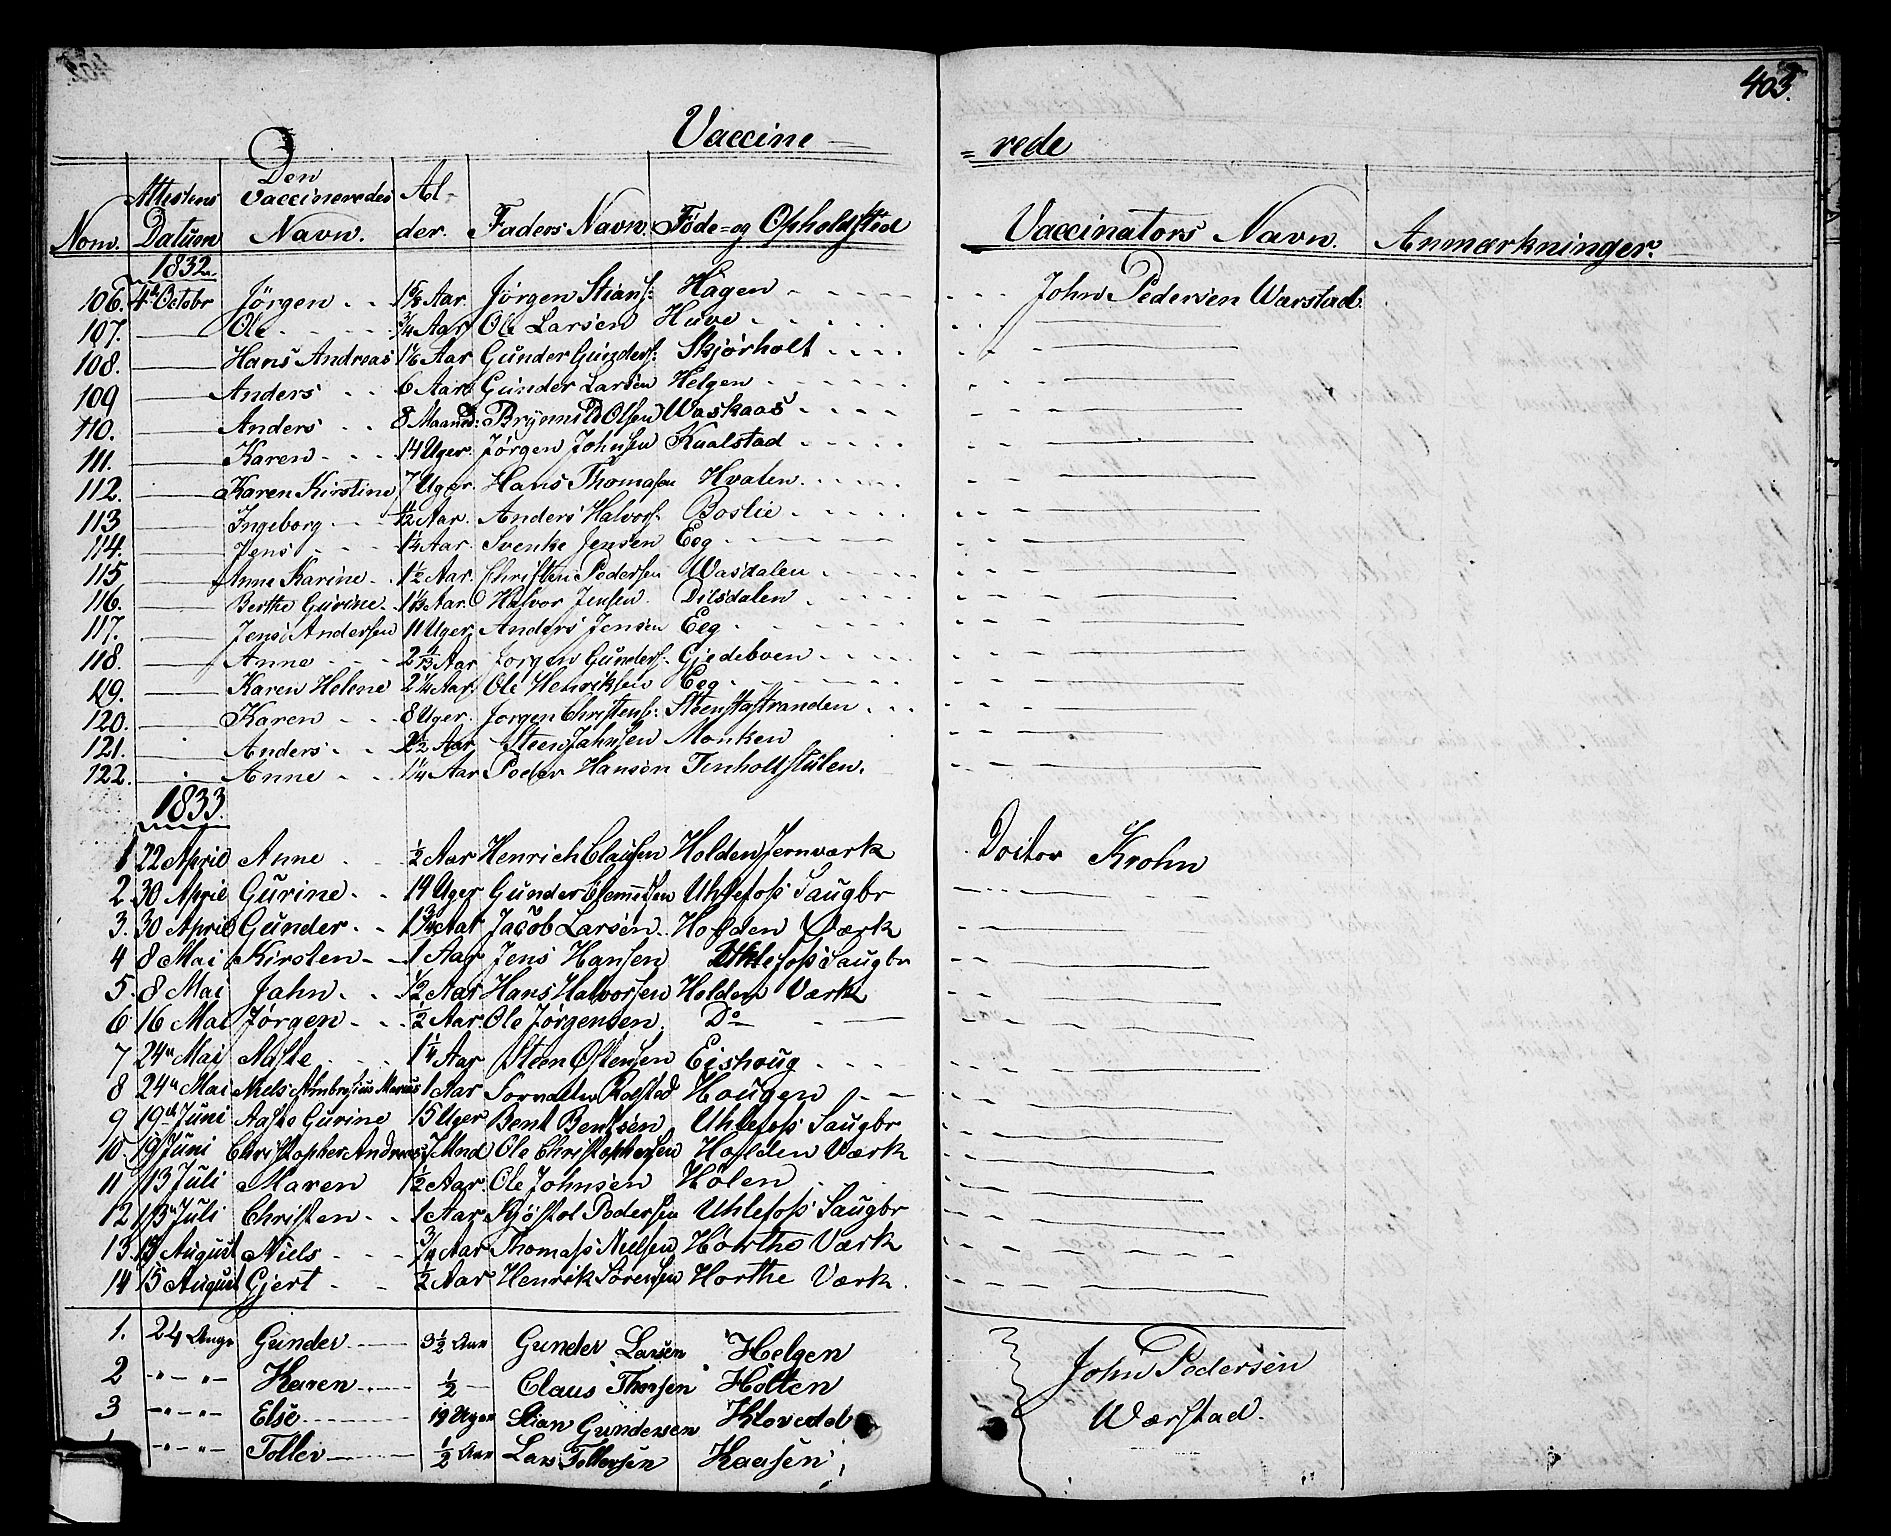 403.
Vaccine = rede
Nom. Attestens Datum Den Vaccineredes Navn. Al- der. Faders Navn. Føde- og Opholdsted Vaccinators Navn. Anmærkninger.
1832.
106. 4de Octobr Jörgen Aar Jörgen Stians: Hagen John Pedersen Warstad
107. Ole 3/4 Aar Ole Larsen Huve
108. Hans Andreas 1 1/6 Aar Gunder Gunders: Skjörholt
109 Anders 6 Aar Gunder Larsen Helgen
110. Anders 8 Maaned: Brynnild Olsen Waskaas
111. Karen 14 Uger Jörgen Johnsen Kualstad
112. Karen Kirstine 7 Uger. Hans Thomasen Hvalen
113 Ingeborg 1/2 Aar. Anders Halvors: Boslie
114. Jens 1 1/4 Aar. Svenke Jensen Eeg
115 Anne Karine 1 1/2 Aar. Christen Pedersen Wasdalen
116. Berthe Gurine 1 1/3 Aar. Halvor Jensen Dilsdalen
117. Jens Andersen 11 Uger Anders Jensen Eeg
118. Anne Aar Jorgen Gunders: Gjedeboen
119. Karen Helene 2 1/4 Aar. Ole Henriksen Eeg
120. Karen 8 Uger. Jorgen Christens: Steenstastranden
121. Anders 2 1/2 Aar Steen Jahnsen Monken
122. Anne 1 1/4 Aar Peder Hansen Tinholtstulen.
1833.
1 22 April Anne 1/2 Aar Henrich Clausen Holden Jernværk Doctor Krohn
2. 30 April Gurine 14 Uger Gunder Clemmetsen Uhlefoss Saugbr
3. 30 April Gunder 1 3/4 Aar Jacob Larsen Holden Værk
4 8 Mai Kirsten 1 Aar Jens Hansen Uhlefoss Saugbr
5. 8 Mai Jahn 1/2 Aar Hans Halvorsen Holden Værk
6 16 Mai Jørgen 1/2 Aar. Ole Jørgensen. Do
7 24de Mai Aaste 1 1/4 Aar Steen Østensen Eishoug
8 24de Mai Niels Ambrosius Marcus 1 Aar Rolstad Hougen
9 19de Juni Aaste Gurine 15 Uger Bent Bentsen Uhlefoss Saugbr
10. 19 Juni Christopher Andreas 7 Mnd Ole Christophersen Holden Værk
11 13 Juli Maren 1/2 Aar. Ole Johnsen Holen
12 13 Juli Christen 1 Aar Kjøstol Pedersen Uhlefoss Saugbr
13. 15 August Niels 3/4 Aar Thomas Nielsen Horthe Værk
14 15 August Gjert 1/2 Aar Henrik Sørensen Horthe Værk.
1. 24 Augs Gunder 3 1/2 Aar Gunder Larsen Helgen John Pedersen
2 " " Karen 1/2 Claus Thorsen Holten Wærstad.
3 " " Else 19 Uger Stian Gundersen Klovedal
" " Tollev 1/2 Aar Lars Tollevsen Kaasen